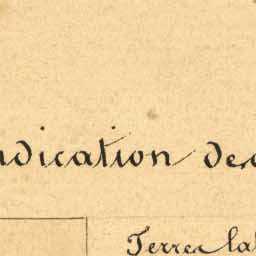 ndication des
Terres la